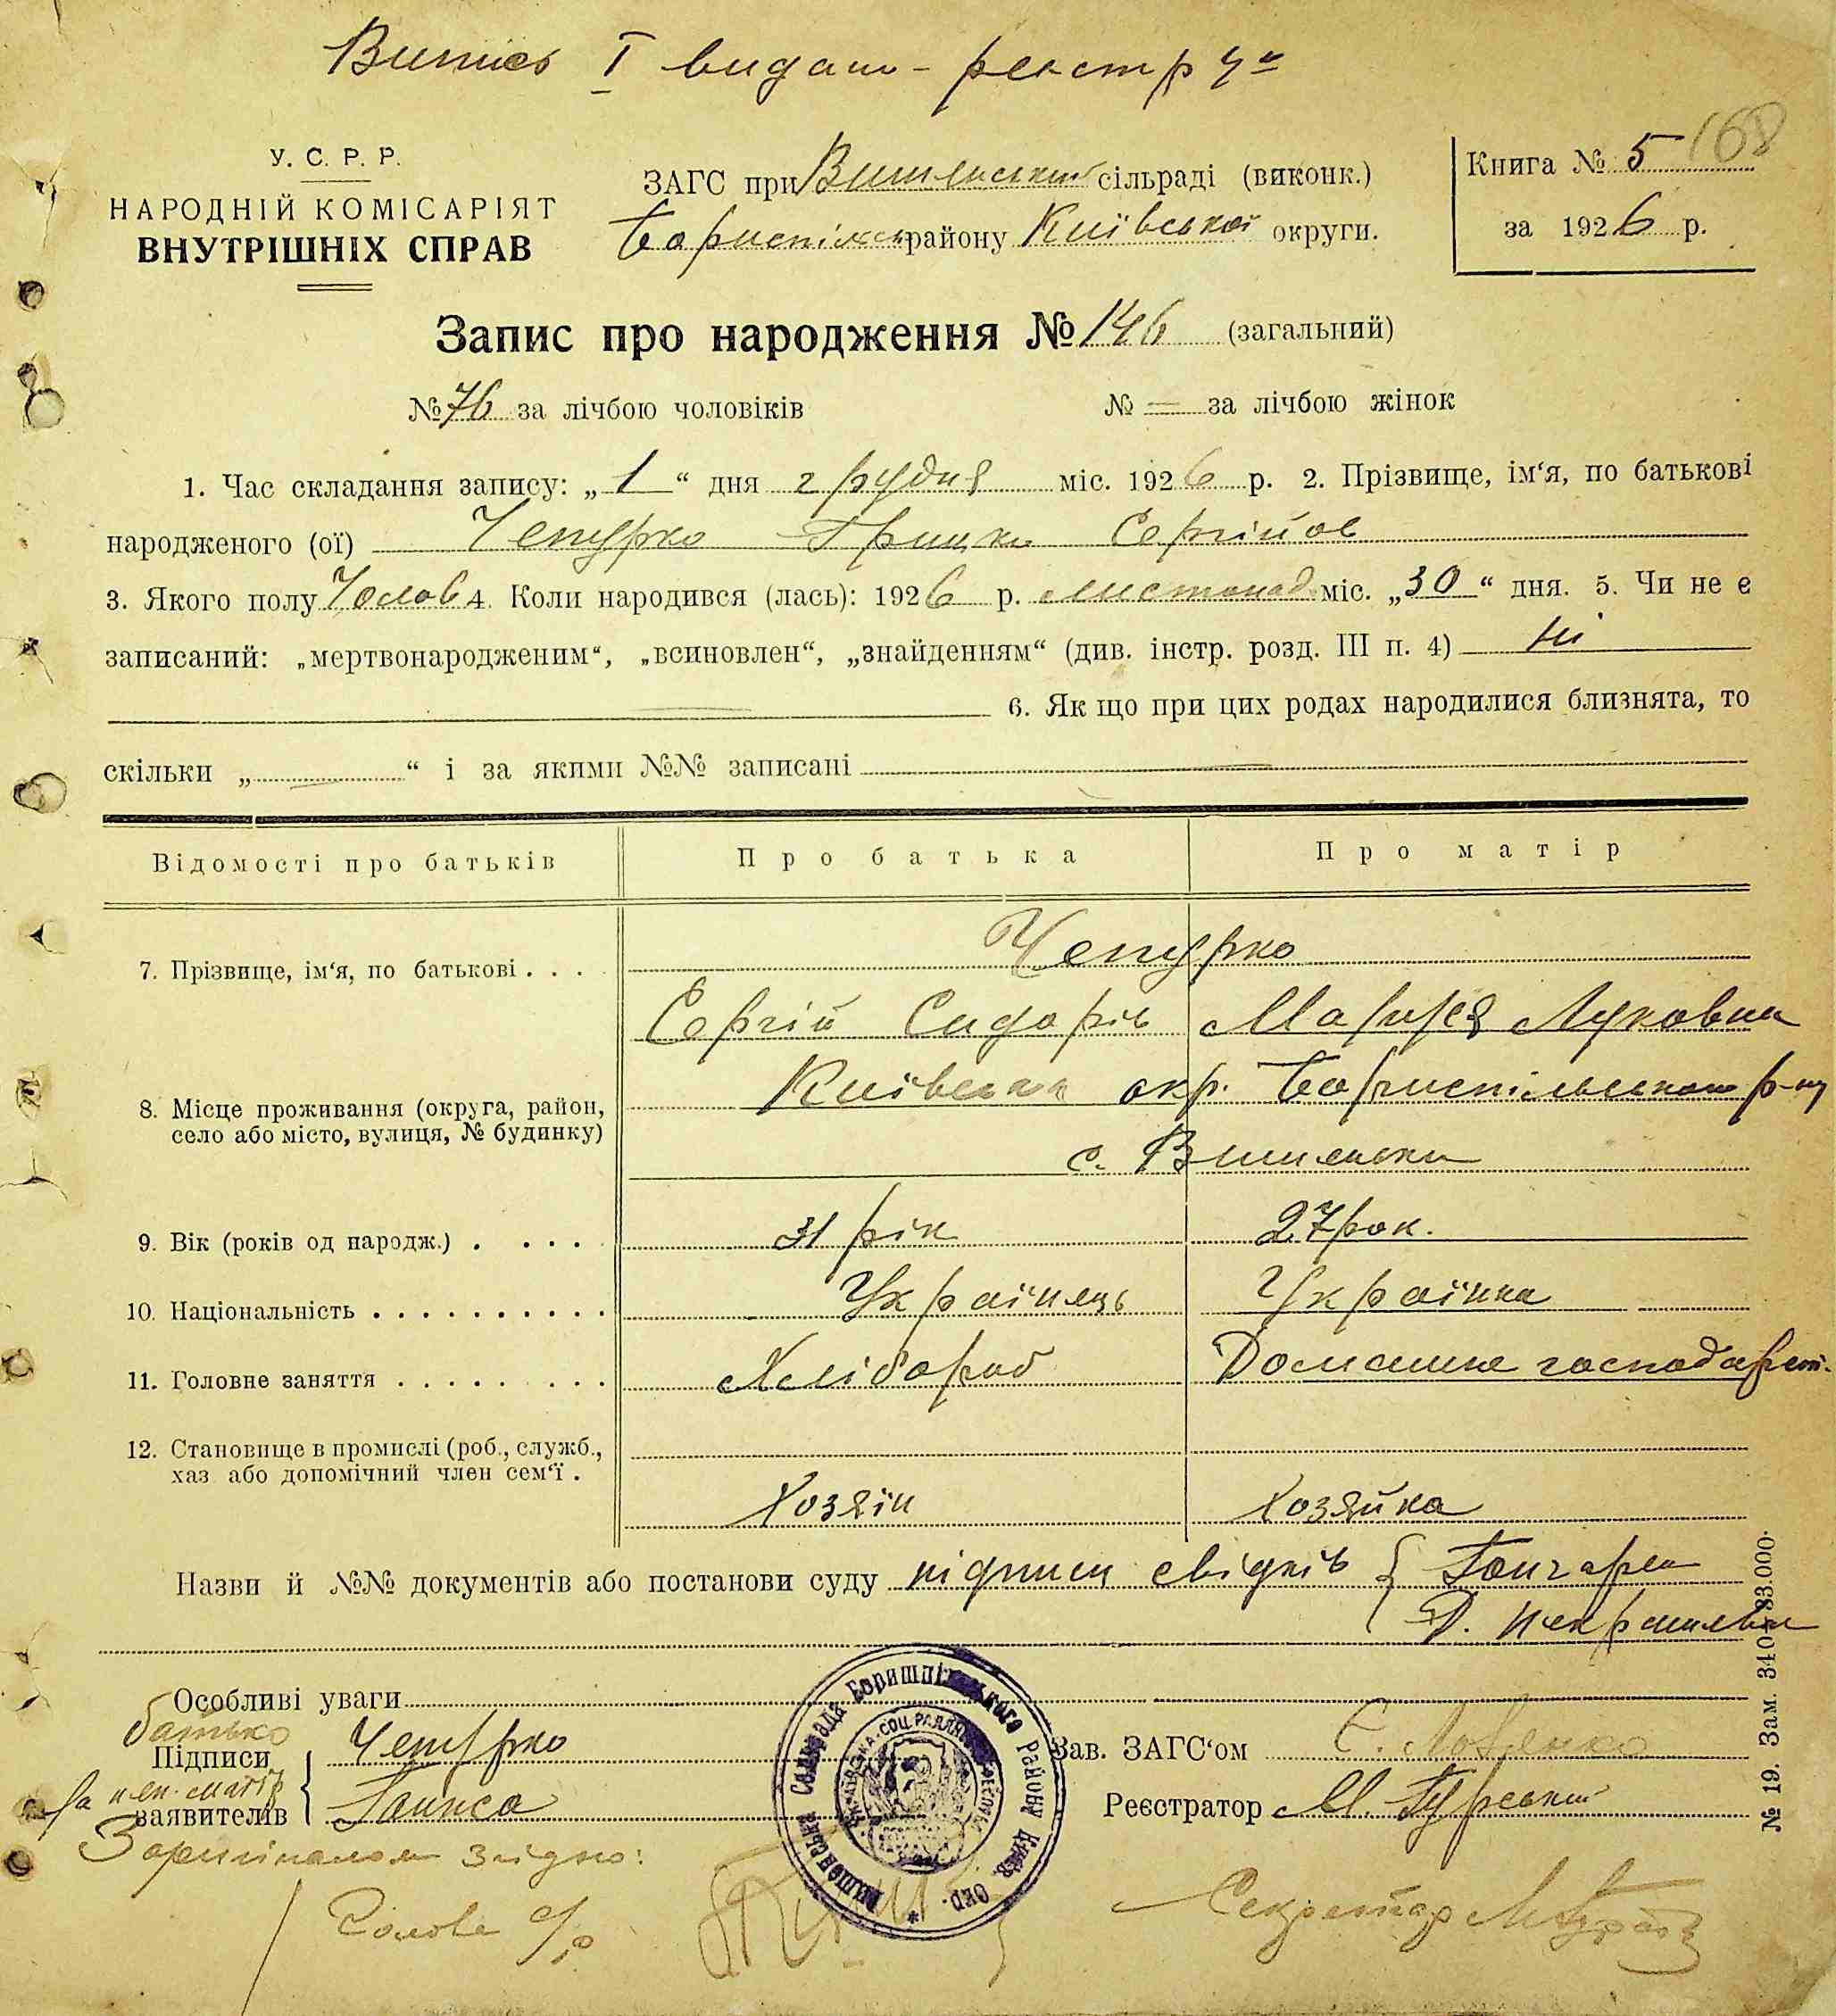 Випись I видано - реєстр ч
168
У. С. Р. Р.
НАРОДНІЙ КОМІСАРІЯТ
ВНУТРІШНІХ СПРАВ
ЗАГС при Вишенській сільраді (виконк.)
Бориспільськ району Київської округи.
Книга № 5
за 1926 р.
Запис про народження № 146 (загальний)
№ 76 за лічбою чоловіків № — за лічбою жінок
1. Час складання запису: „1“ дня грудня міс. 1926 р. 2. Прізвище, ім‘я, по батькові
народженого (ої) Чепурко Грицко Сергійов
3. Якого полу Чолов 4. Коли народився (лась): 1926 р. листопад міс. „30“ дня. 5. Чи не є
записаний: „мертвонародженим“, „всиновлен“, „знайденням“ (див. інстр. розд. III п. 4) ні
6. Як що при цих родах народилися близнята, то
скільки „ “ і за якими №№ записані
Відомості про батьків Про батька Про матір
7. Прізвище, ім‘я, по батькові . . . Чепурко
Сергій Сидорів Марія Луковна
8. Місце проживання (округа, район, Київська окр. Бориспільського р-ну
село або місто, вулиця, № будинку)
с. Вишеньки
9. Вік (років од народж.) . . . . 31 рік 27 рок.
10. Національність . . . . . . . . . . Українець Українка
11. Головне заняття . . . . . . . . . Хлібороб Домашне господарст.
12. Становище в промислі (роб., служб.,
хаз або допомічний член сем‘ї .
Хозяїн Хозяйка
Назви й №№ документів або постанови суду підписи свідків { Гончарен
Д.
Особливі уваги
батько
Підписи Чепурко
за неп. матір
заявителів Ганиса
Зав. ЗАГС‘ом
Реєстратор М. Гурський
З оригіналом згідно:
Голова с/р
Секретар
Сільрада Бориспільського Району Київ. Окр.
№ 19. Зам. 340—33.000.